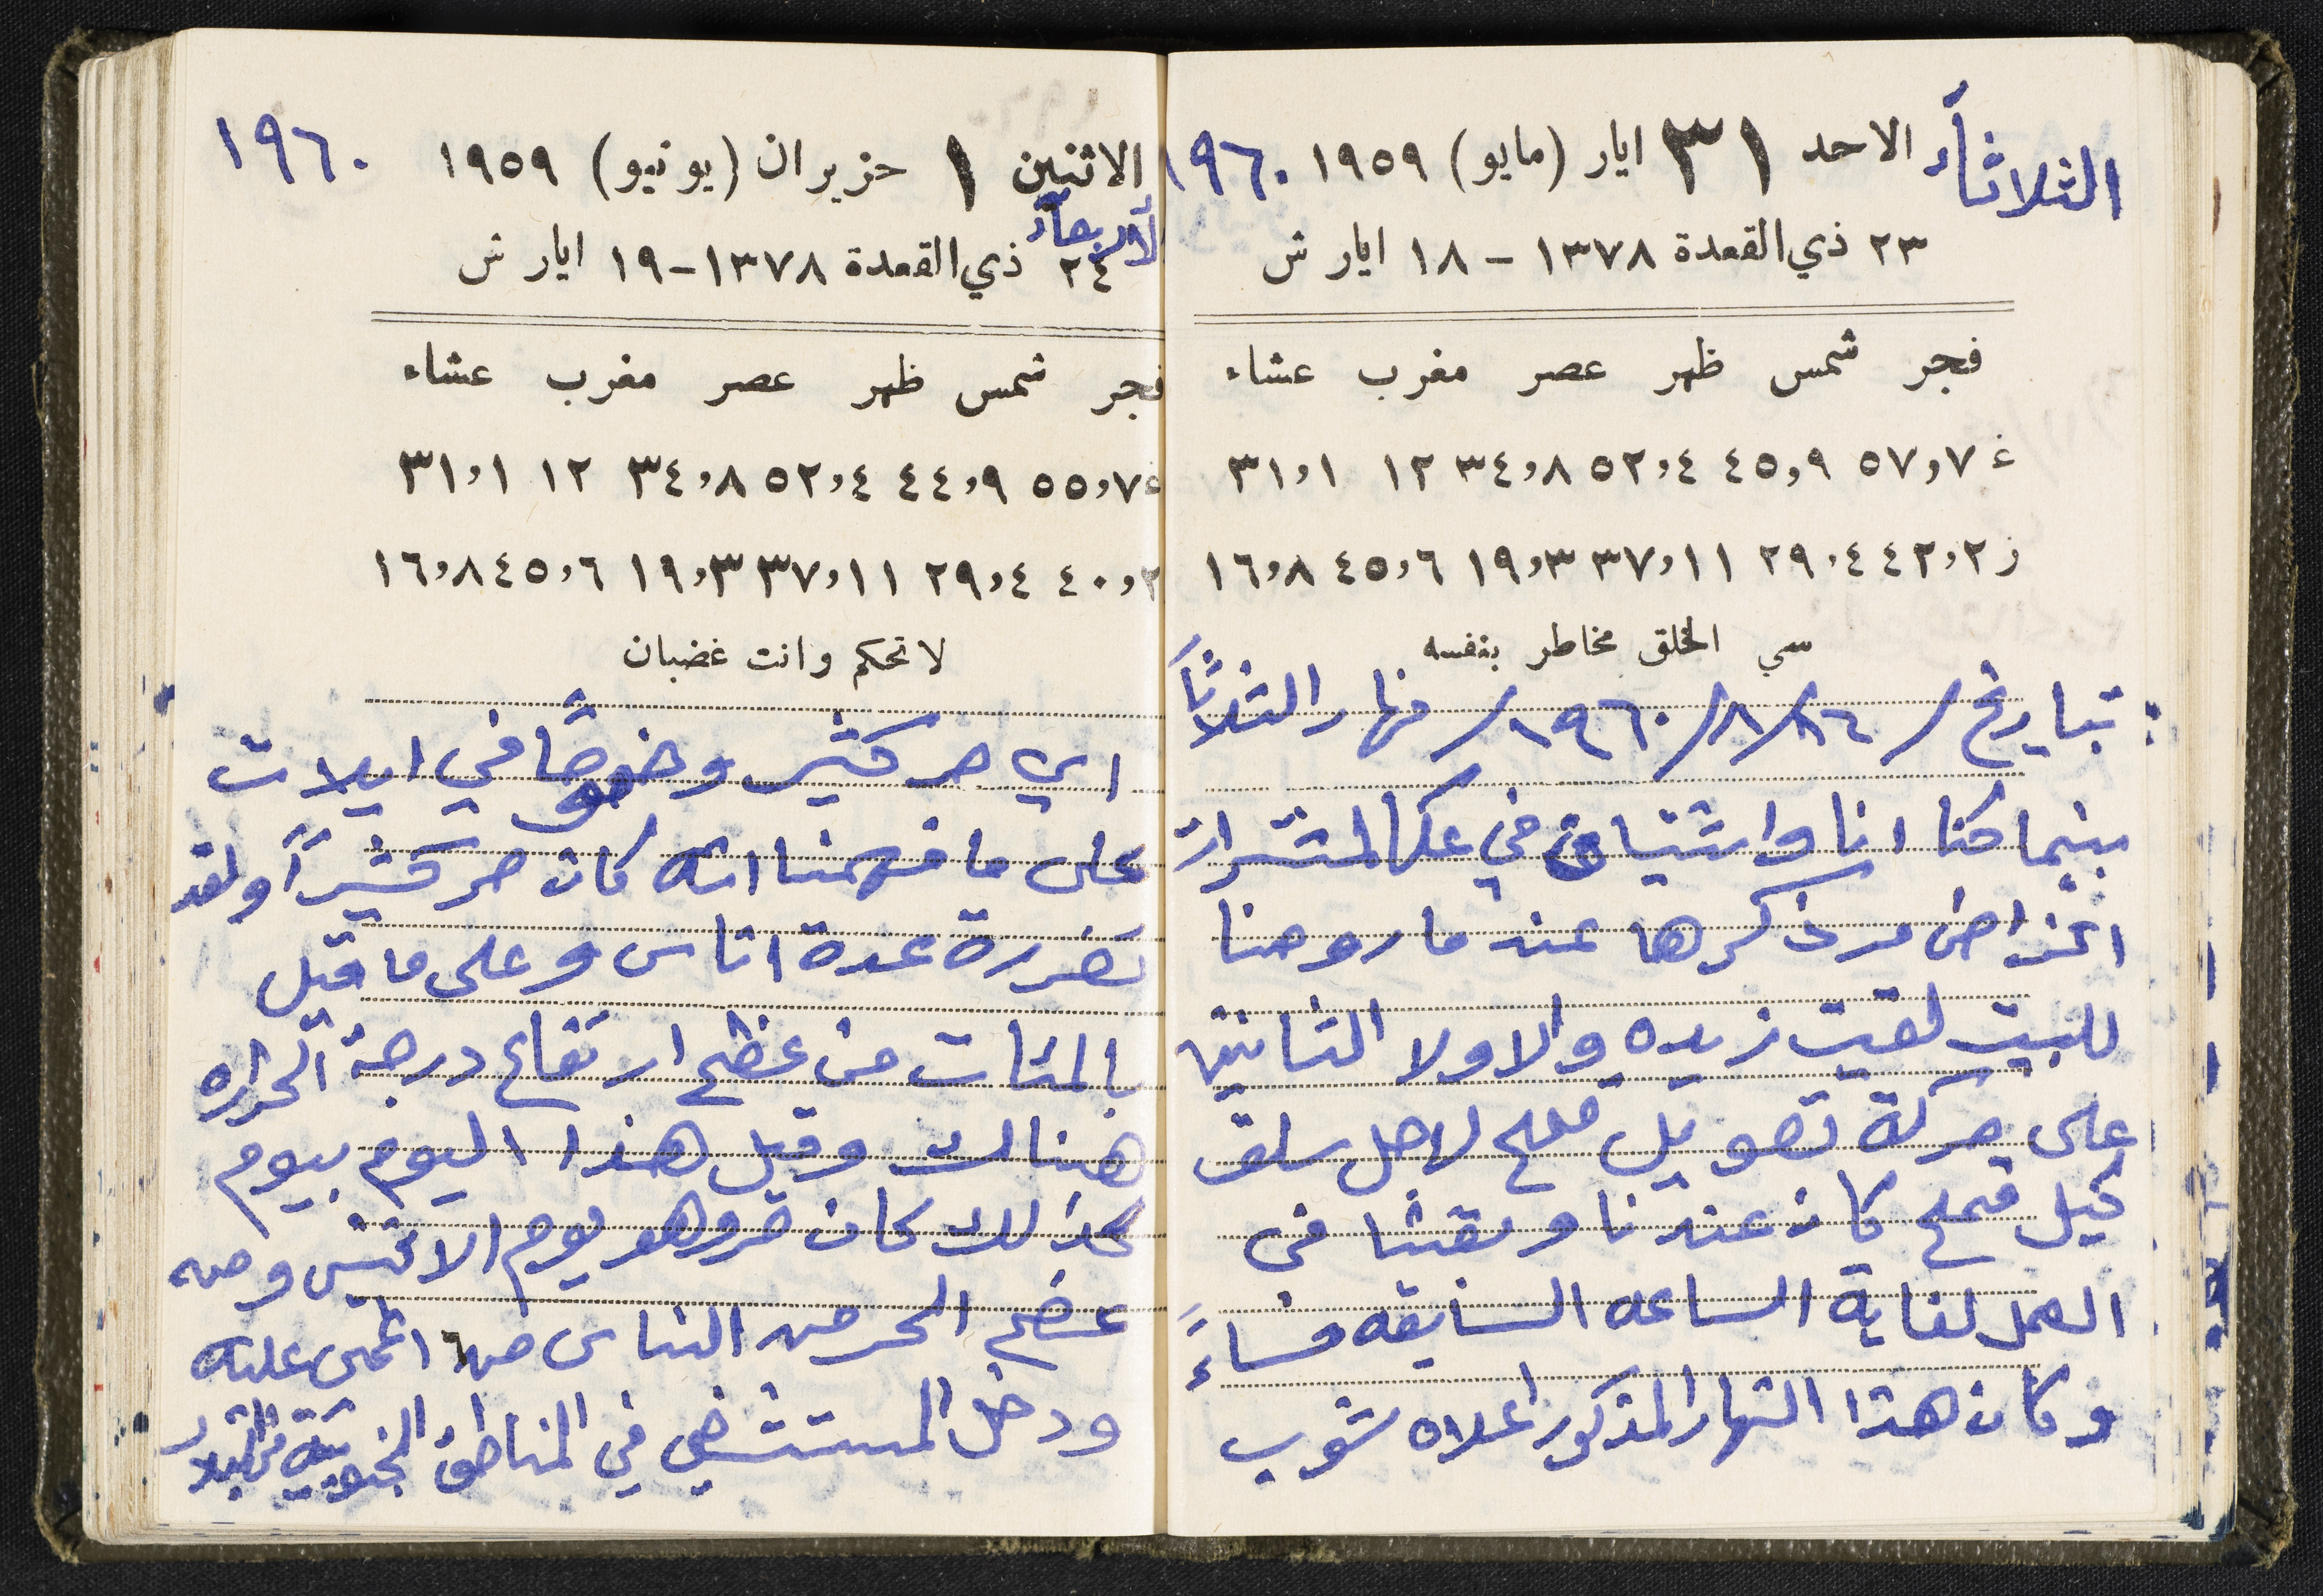 الثلاثاء الاحد ٣١ ايار (مايو) ١٩٥٩ ١٩٦٠
٢٣ ذي القعدة ١٣٧٨ - ١٨ ايار ش
فجر شمس ظهر عصر مغرب عشاء
غ ٥٧,٧ ٤٥,٩ ٥٢,٤ ٣٤,٨ ١٢ ٣١,١
ز ٤٢,٢ ٢٩,٤ ٣٧,١١ ١٩,٣ ٤٥,٦ ١٦,٨
سيء الخلق مخاطر بنفسه
: بتاريخ /١٦/٨/١٩٦٠/ نهار الثلاثاً
بينما كنا انا واشتياق في عكا لمشترات
اغراض مر ذكرها عند ما روحنا
للبيت لقيت زيده والاولا الثانين
على حركة تصويل قمح لاجل سلق
كيل قمح كان عندنا وبقينا في
العمل لغاية الساعه السابعه مساءً
وكان هذا النهار المذكور اعلاه شوب
الاثنين ١ حزيران (يونيو) ١٩٥٩ ١٩٦٠
الاربعاء
٢٤ ذي القعدة ١٣٧٨ - ١٩ ايار ش
فجر شمس ظهر عصر مغرب عشاء
غ ٥٥,٧ ٤٤,٩ ٥٢,٤ ٣٤,٨ ١٢ ٣١,١
٤٠,٢ ٢٩,٤ ٣٧,١١ ١٩,٣ ٤٥,٦ ١٦,٨
لا تحكم وانت غضبان
اي حر كثير وخصوصًا في ايلات
على ما فهمنا انه كان حر كثيراً ولقد
تضررة عدة اناس وعلى ما قيل
بالمئات من عظم ارتفاع درجة الحراره
هنالك وقبل هذا اليوم بيوم
كذلك كان حر وهو يوم الاثنين ومن
عضم الحر من الناس من اغمى عليه
ودخل المستشفى في المناطق الجنوبية من البلاد